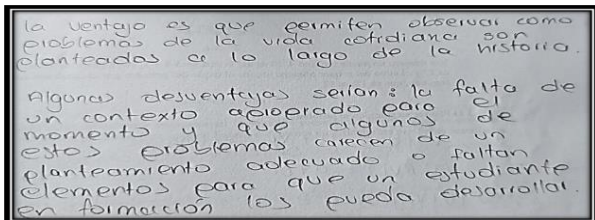 la ventaja es que permiten observar como
problemas de la vida cotidiana son
planteados a lo largo de la historia.
Algunas desventajas serian: la falta de
un contexto apropiado para el
momento y que algunos de
estos problemas carecen de un
planteamiento adecuado o faltan
elementos para que un estudiante
en formación los pueda desarrollar.